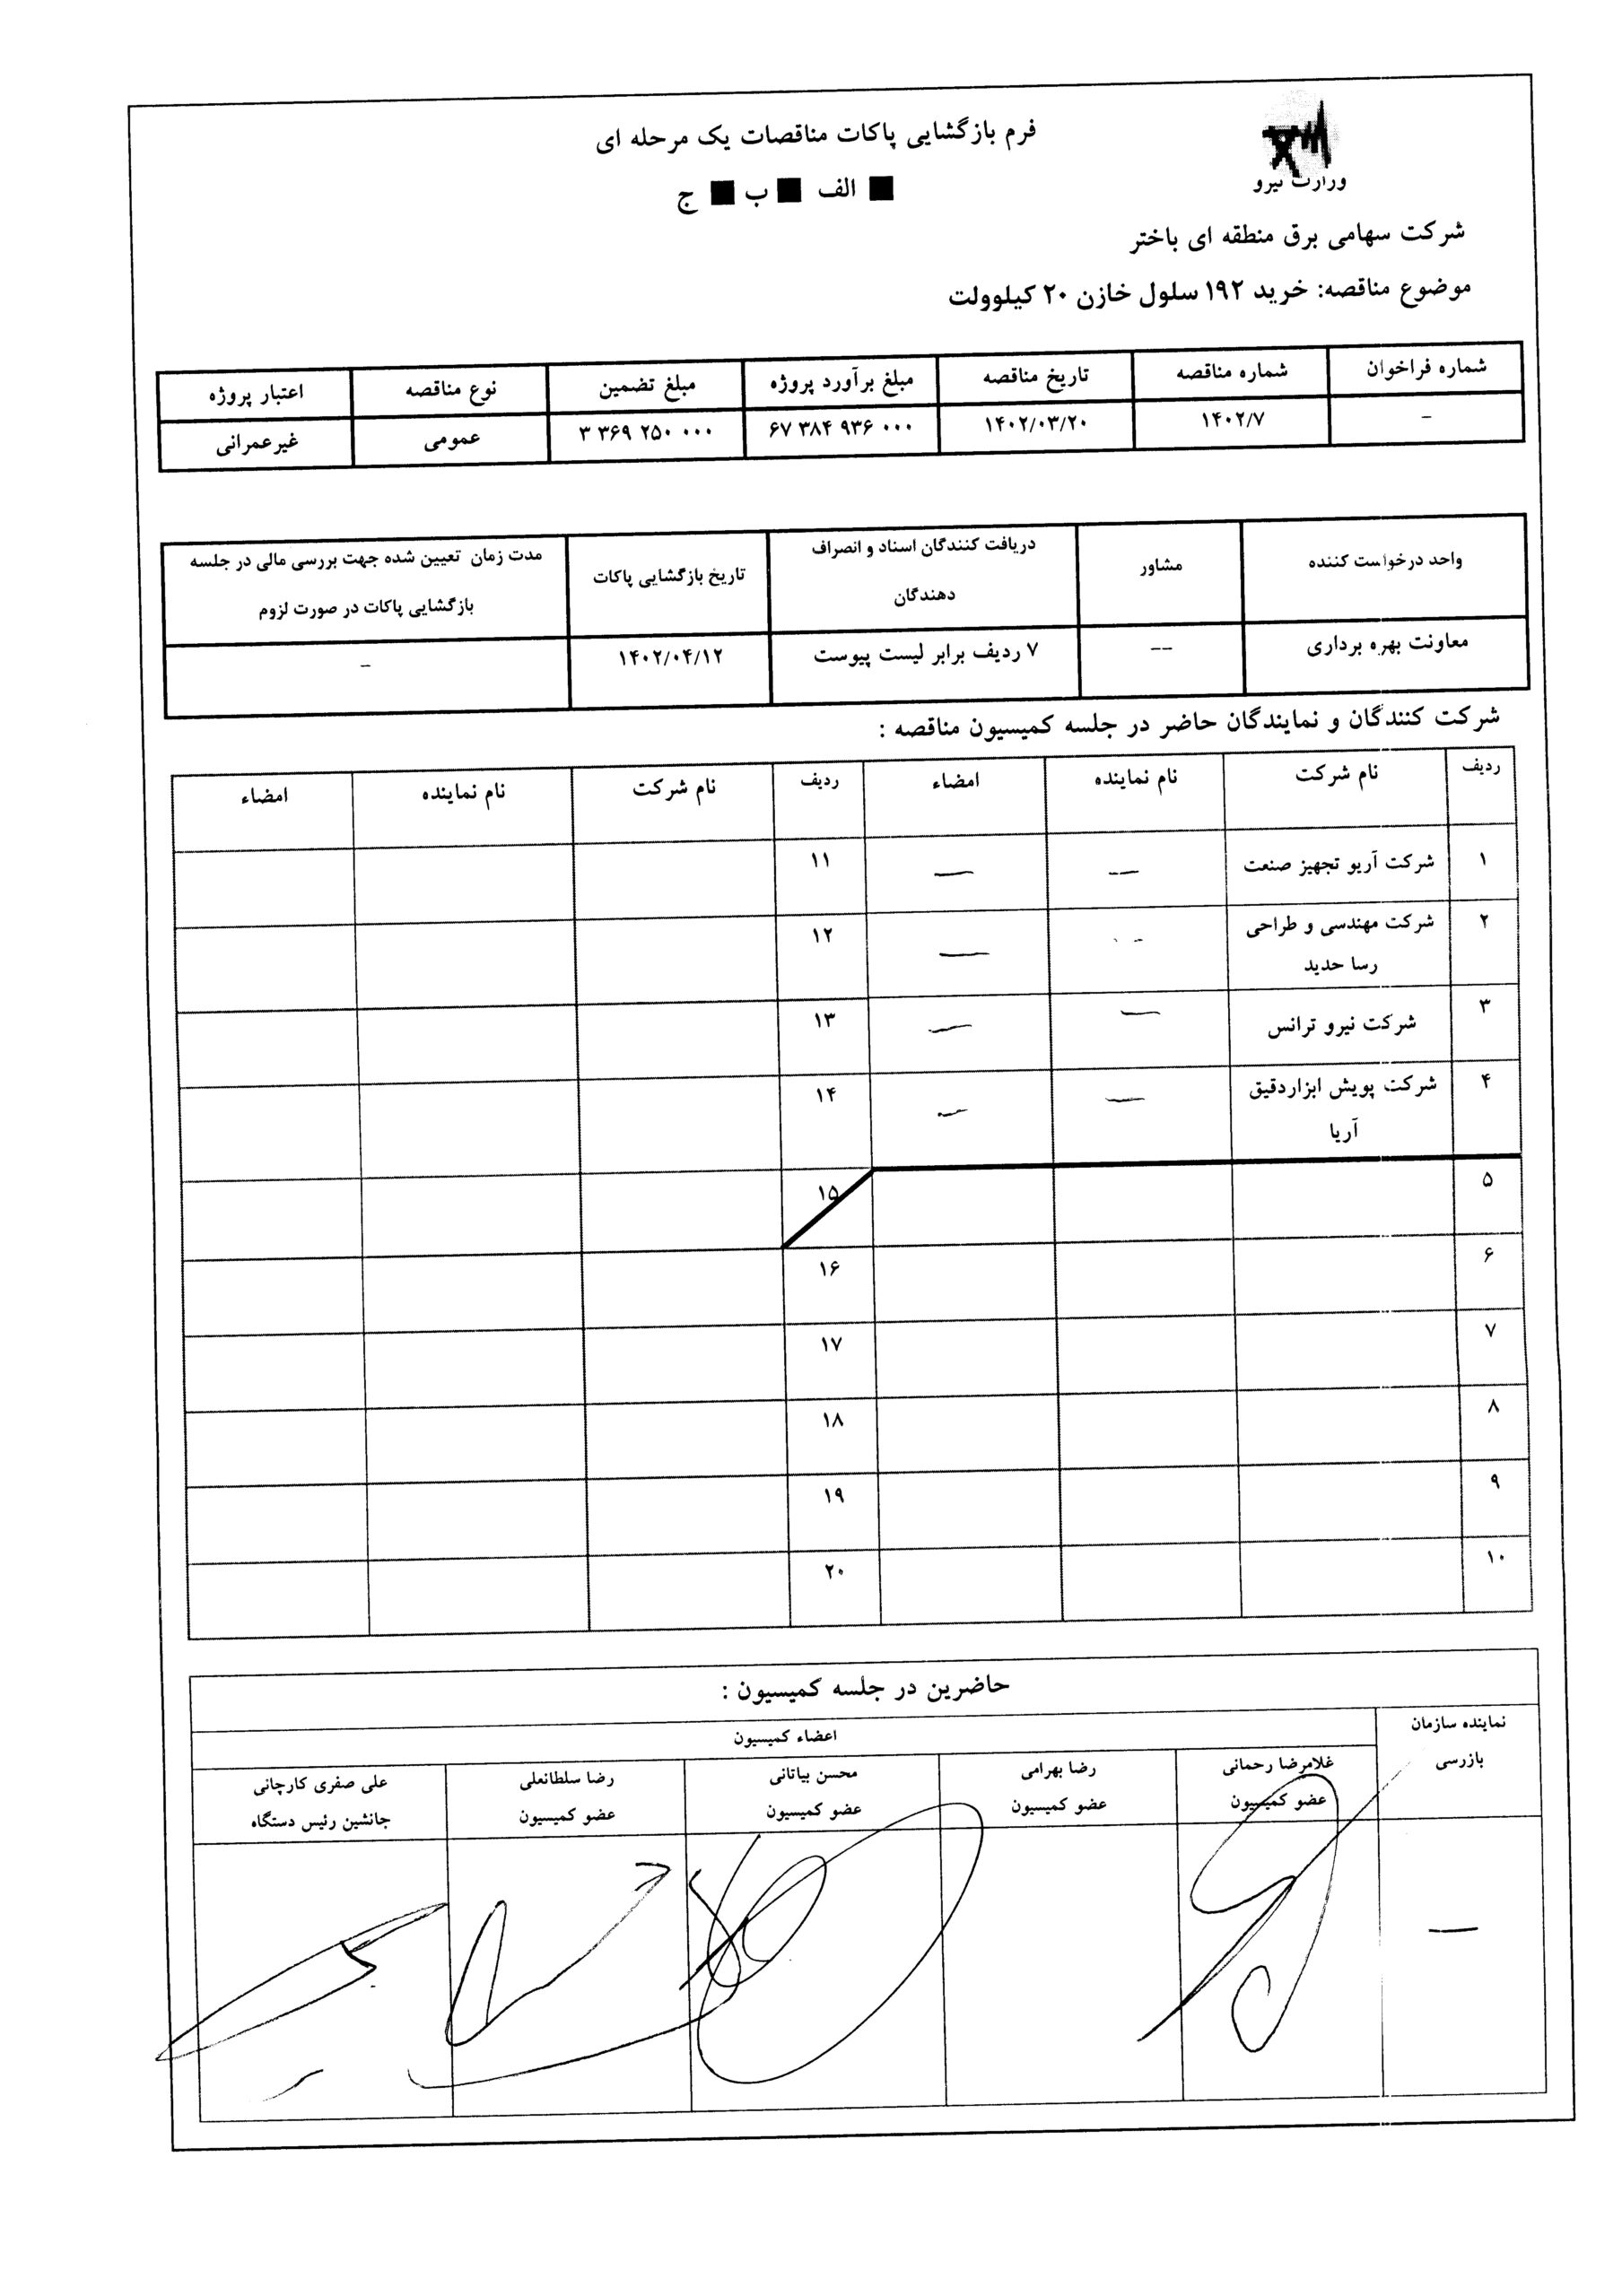 وزارت نیرو
فرم بازگشایی پاکات مناقصات یک مرحله ای
■ الف ■ ب ■ ج
شرکت سهامی برق منطقه ای باختر
موضوع مناقصه: خرید ۱۹۲ سلول خازن ۲۰ کیلوولت
شماره فراخوان شماره مناقصه تاریخ مناقصه مبلغ برآورد پروژه مبلغ تضمین نوع مناقصه اعتبار پروژه
– ۱۴۰۲/۷ ۱۴۰۲/۰۳/۲۰ ۶۷ ۳۸۴ ۹۳۶ ۰۰۰ ۳ ۳۶۹ ۲۵۰ ۰۰۰ عمومی غیرعمرانی
واحد درخواست کننده
مشاور
دریافت کنندگان اسناد و انصراف
دهندگان
تاریخ بازگشایی پاکات
مدت زمان تعیین شده جهت بررسی مالی در جلسه
بازگشایی پاکات در صورت لزوم
معاونت بهره برداری -- ۷ ردیف برابر لیست پیوست ۱۴۰۲/۰۴/۱۲ –
شرکت کنندگان و نمایندگان حاضر در جلسه کمیسیون مناقصه :
ردیف نام شرکت نام نماینده امضاء ردیف نام شرکت نام نماینده امضاء
۱ شرکت آریو تجهیز صنعت -- — ۱۱
۲ شرکت مهندسی و طراحی -- — ۱۲
رسا حدید
۳ شرکت نیرو ترانس — — ۱۳
۴ شرکت پویش ابزاردقیق — — ۱۴
آریا
۵ ۱۵
۶ ۱۶
۷ ۱۷
۸ ۱۸
۹ ۱۹
۱۰ ۲۰
حاضرین در جلسه کمیسیون :
نماینده سازمان
بازرسی
اعضاء کمیسیون
غلامرضا رحمانی
عضو کمیسیون
رضا بهرامی
عضو کمیسیون
محسن بیاتانی
عضو کمیسیون
رضا سلطانعلی
عضو کمیسیون
علی صفری کارچانی
جانشین رئیس دستگاه
—